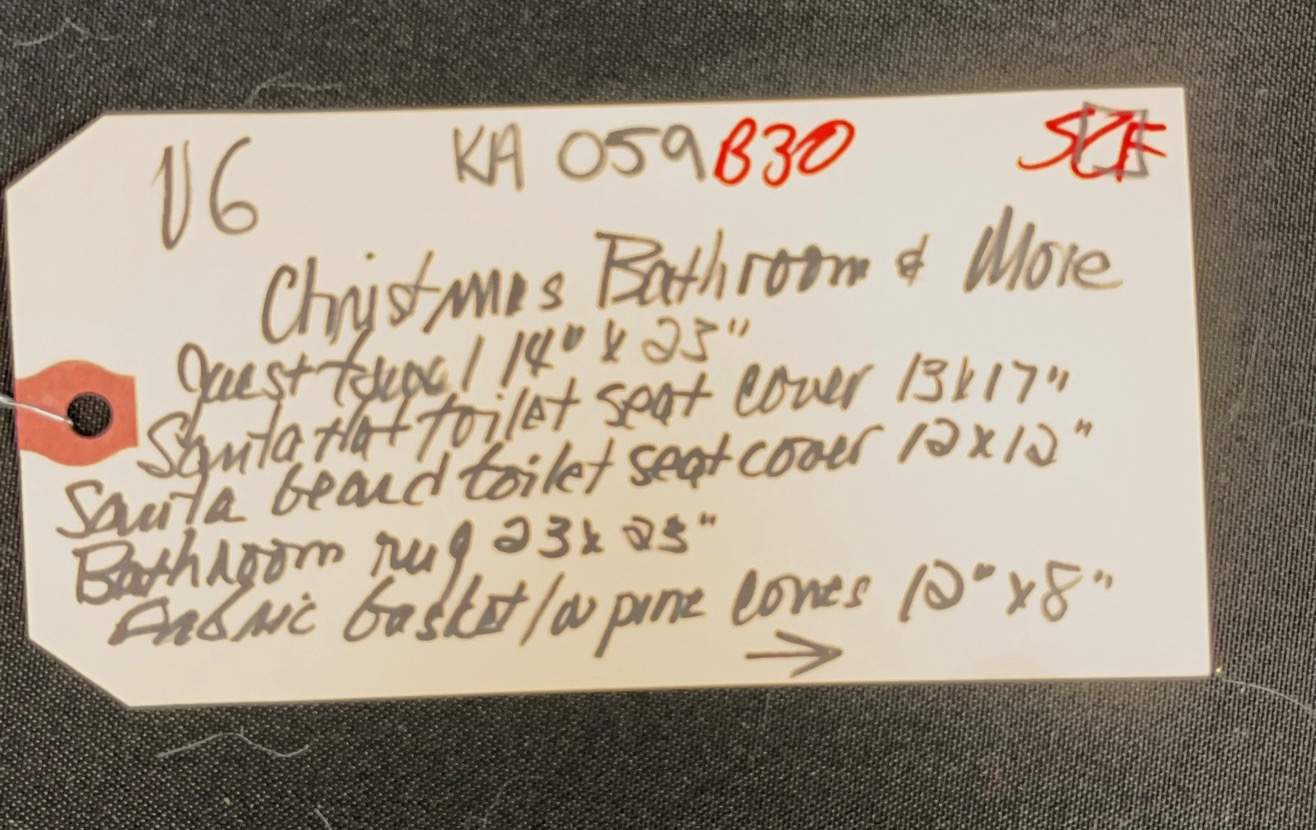 V6 KA 059 B30 SCF
Christmas Bathroom & More
Guest towel 14" x 23"
Santa Hat toilet seat cover 13x17"
Santa beard toilet seat cover 12x12"
Bathroom rug 23x23"
Fabric basket/w pine cones 12" x 8"
→